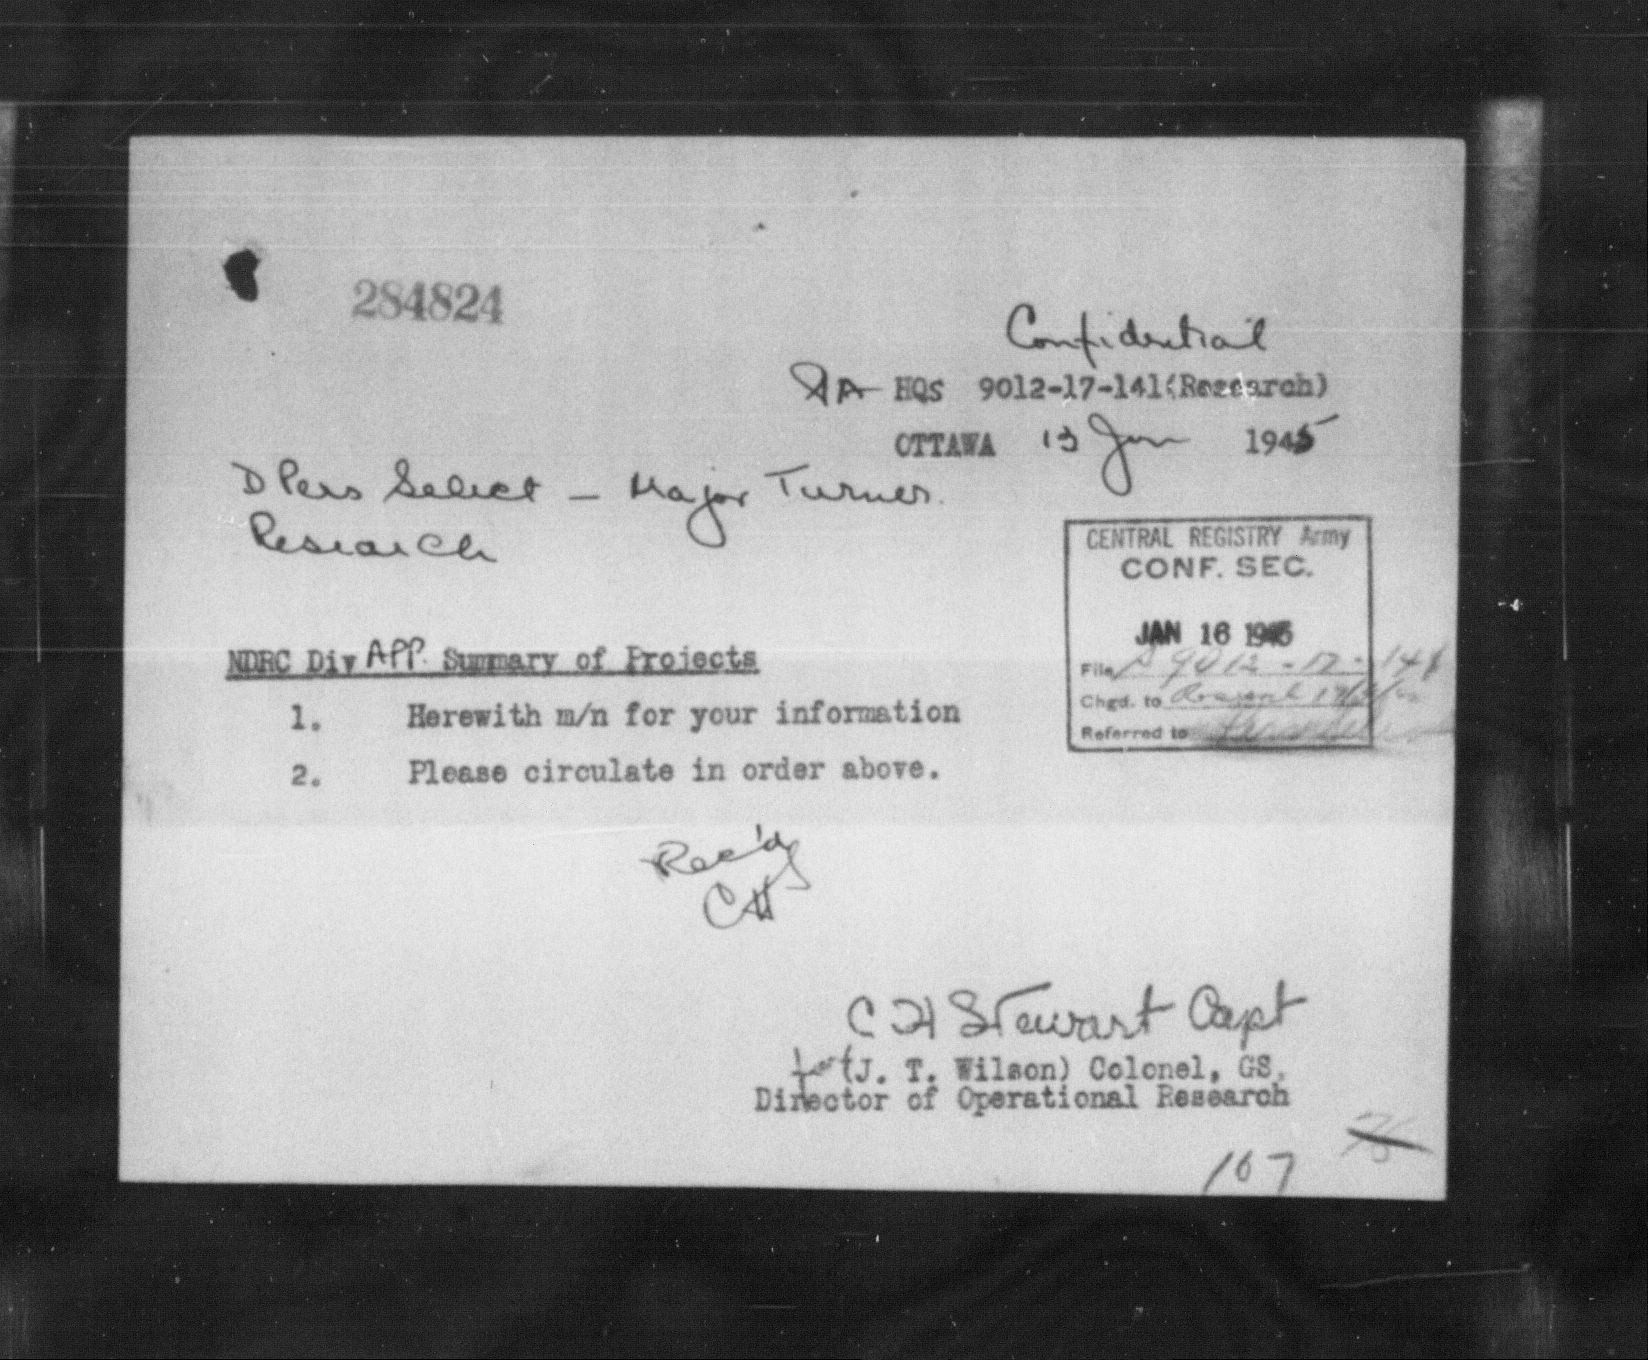 284824
Confidential
HQS 9012-17-141(Research)
OTTAWA 13 Jan 1945
D Pers Select - Major Turner.
Research
CENTRAL REGISTRY Army
CONF. SEC.
JAN 16 1945
File 9012-17-141
Chgd. to
Referred to
NDRC Div APP. Summary of Projects
1. Herewith m/n for your information
2. Please circulate in order above.
Rec'd
CH
C H Stewart Capt
for (J. T. Wilson) Colonel, GS.
Director of Operational Research
107